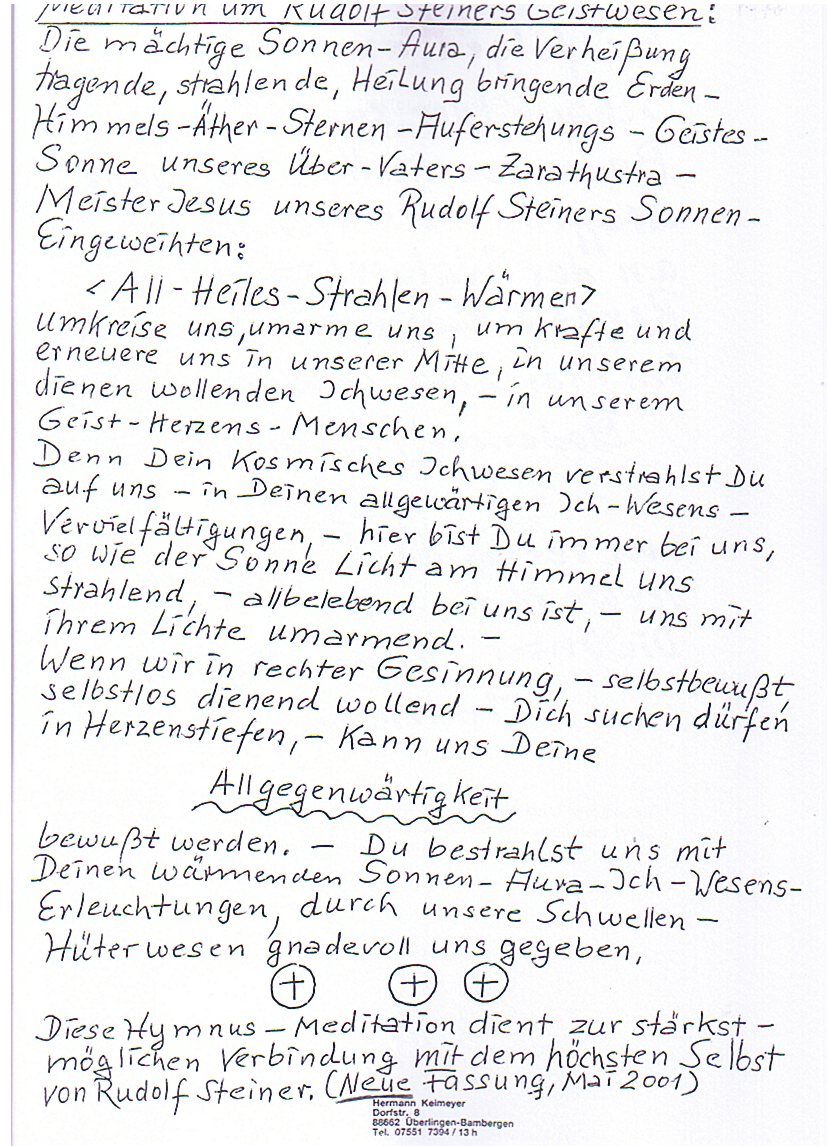 Meditation um Rudolf Steiners Geistwesen:
Die mächtige Sonnen-Aura, die Verheißung
tragende, strahlende, Heilung bringende Erden-
Himmels-Äther-Sternen-Auferstehungs-Geistes-
Sonne unseres Über-Vaters-Zarathustra-
Meister Jesus unseres Rudolf Steiners Sonnen-
Eingeweihten:
<All-Heiles-Strahlen-Wärmen>
umkreise uns, umarme uns, umkrafte und
erneuere uns in unserer Mitte, in unserem
dienen wollenden Ichwesen, - in unserem
Geist-Herzens-Menschen.
Denn Dein Kosmisches Ichwesen verstrahlst Du
auf uns - in Deinen allgewärtigen Ich-Wesens-
Vervielfältigungen, - hier bist Du immer bei uns,
so wie der Sonne Licht am Himmel uns
strahlend, - allbelebend bei uns ist, - uns mit
ihrem Lichte umarmend. -
Wenn wir in rechter Gesinnung, - selbstbewußt,
selbstlos dienend wollend - Dich suchen dürfen
in Herzenstiefen, - Kann uns Deine
Allgegenwärtigkeit
bewußt werden. - Du bestrahlst uns mit
Deinen wärmenden Sonnen-Aura-Ich-Wesens-
Erleuchtungen, durch unsere Schwellen-
Hüterwesen gnadevoll uns gegeben,
Diese Hymnus-Meditation dient zur stärkst-
möglichen Verbindung mit dem höchsten Selbst
von Rudolf Steiner. (Neue Fassung, Mai 2001)
Hermann Keimeyer
Dorfstr. 8
88662 Überlingen-Bambergen
Tel. 07551 7394 / 13 h